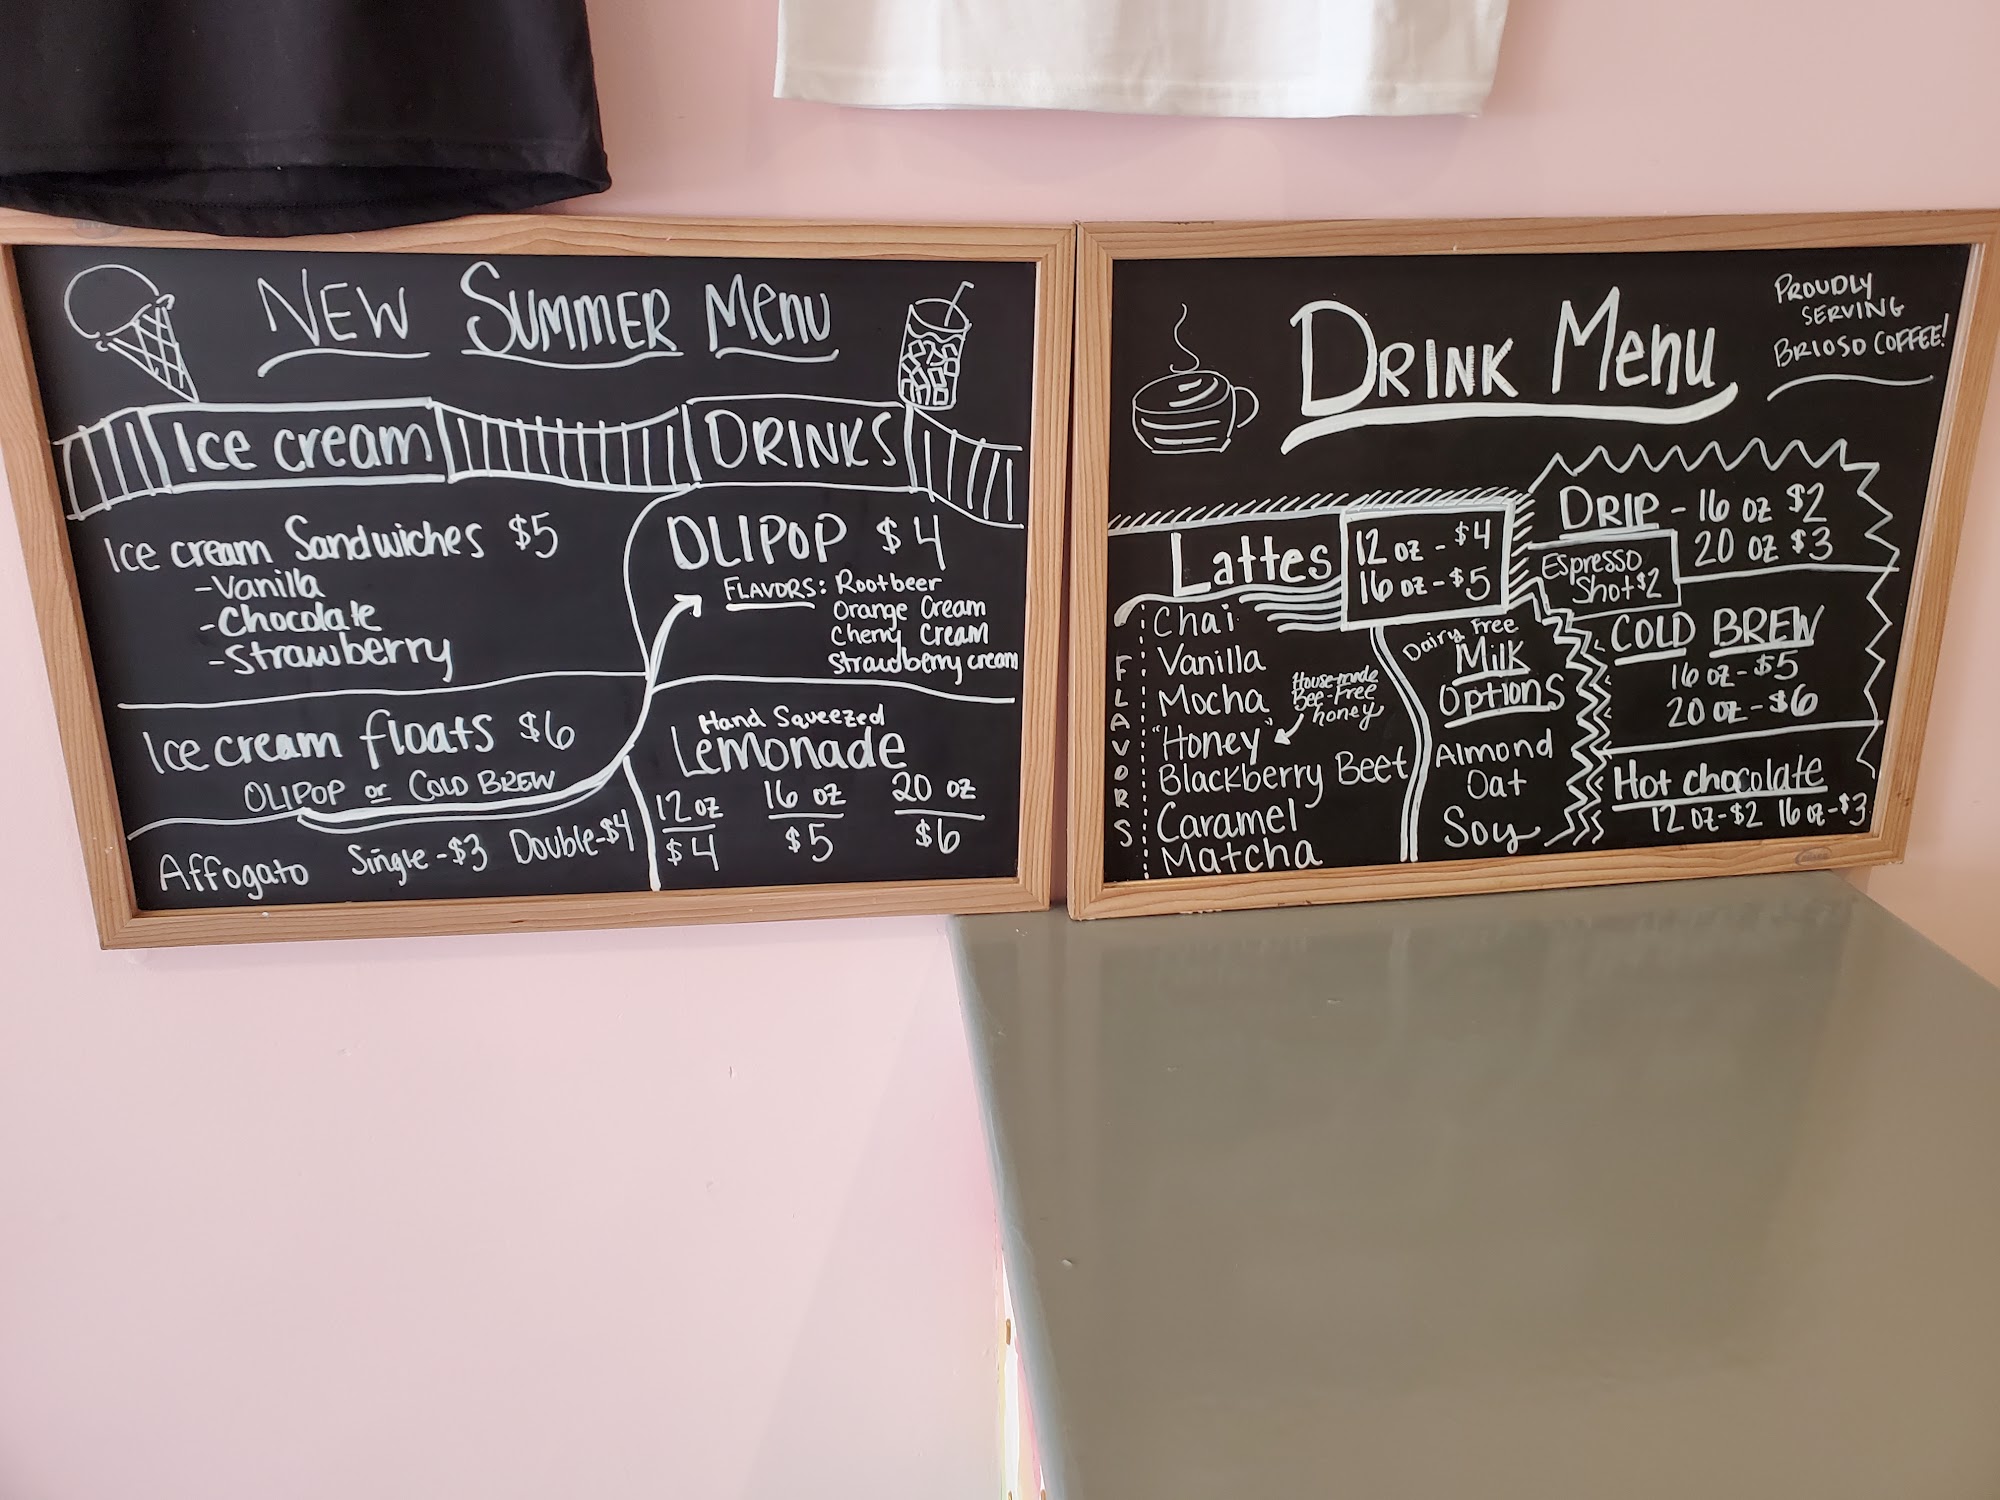 NEW SUMMER MENU
Ice cream
DRINKS
Ice cream Sandwiches $5
-Vanilla
-Chocolate
-Strawberry
Ice cream floats $6
OLIPOP or COLD BREW
Affogato Single-$3 Double-$4
OLIPOP $4
FLAVORS: Rootbeer
Orange Cream
Cherry Cream
Strawberry cream
Hand Squeezed
Lemonade
12 oz 16 oz 20 oz
$4 $5 $6
DRINK MENU
PROUDLY
SERVING
BRIOSO COFFEE!
Lattes
12 oz - $4
16 oz - $5
FLAVORS
Chai
Vanilla
Mocha
"Honey"
House-made
Bee-Free
honey
Blackberry Beet
Caramel
Matcha
Dairy Free
Milk
Options
Almond
Oat
Soy
DRIP - 16 oz $2
20 oz $3
Espresso
Shot $2
COLD BREW
16 oz - $5
20 oz - $6
Hot chocolate
12 oz-$2 16 oz-$3